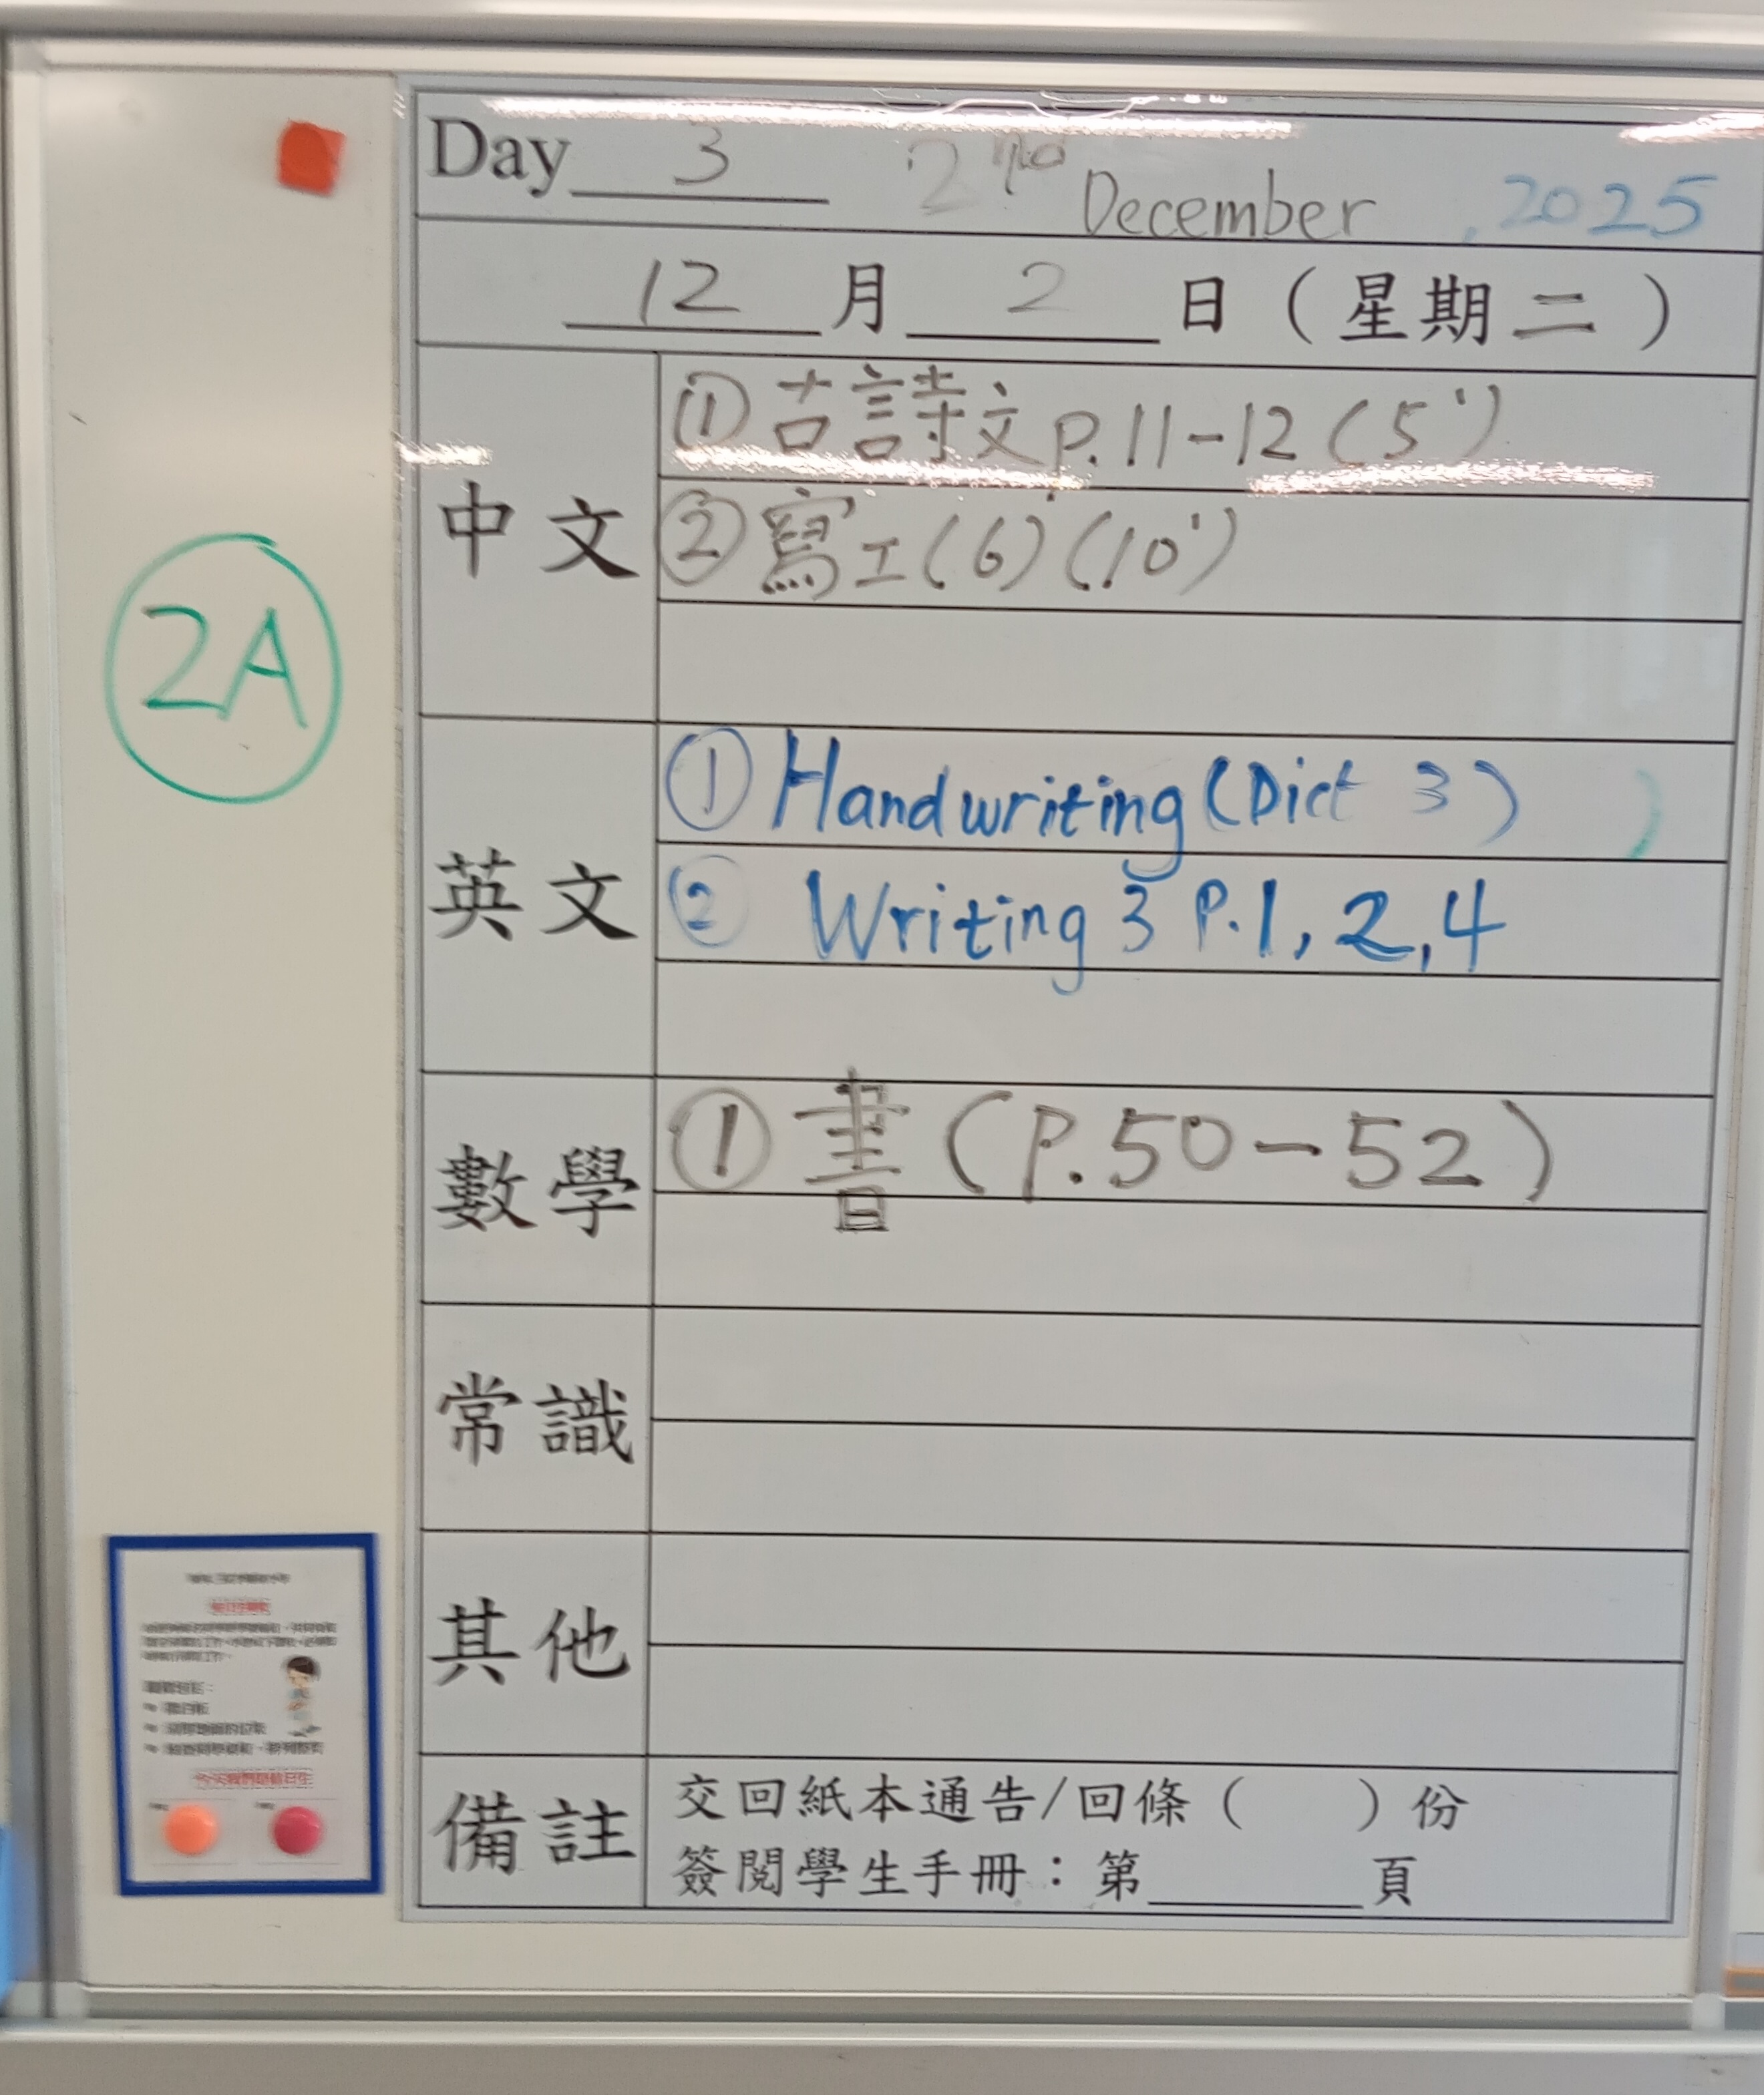 Day 3 2nd December, 2025
12月2日(星期二)
2A
中文
①古詩文p.11-12(5')
②寫工(6)(10')
英文
①Handwriting(Dict 3)
② Writing 3 P.1, 2, 4
數學
①書(P.50-52)
常識
其他
備註
交回紙本通告/回條( )份
簽閱學生手冊:第______頁